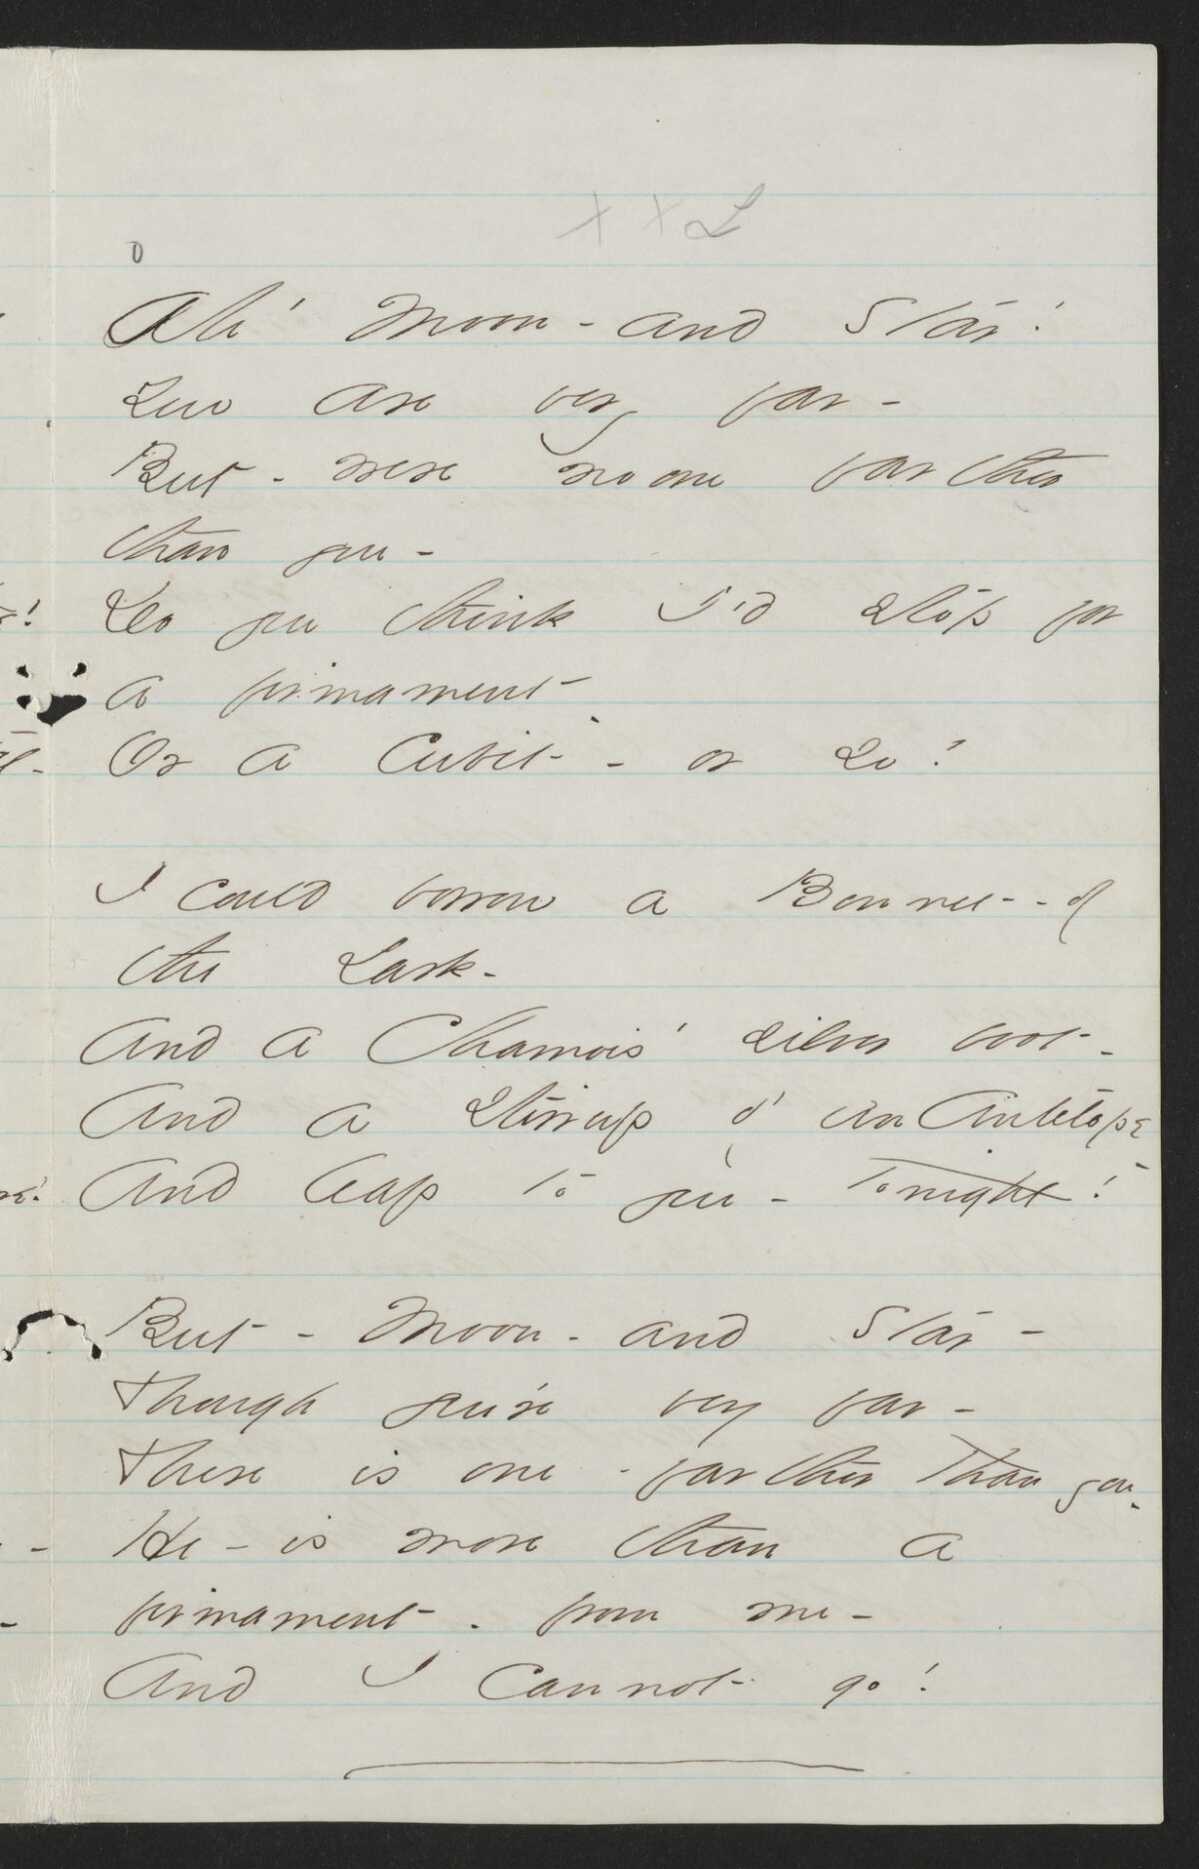 x x L
0
Ah' Moon - and Star!
You are very far -
But - were no one farther
than you -
Do you think I'd stop for
a firmament -
Or a Cubit - or so?
I could borrow a Bonnet - of
the Lark -
And a Chamois' silver boot -
And a stirrup o' an Antelope
And leap to you - tonight!
But - Moon - and Star -
Though you're very far -
There is one - farther than you -
He - is more than a
firmament - from me -
And I cannot go!